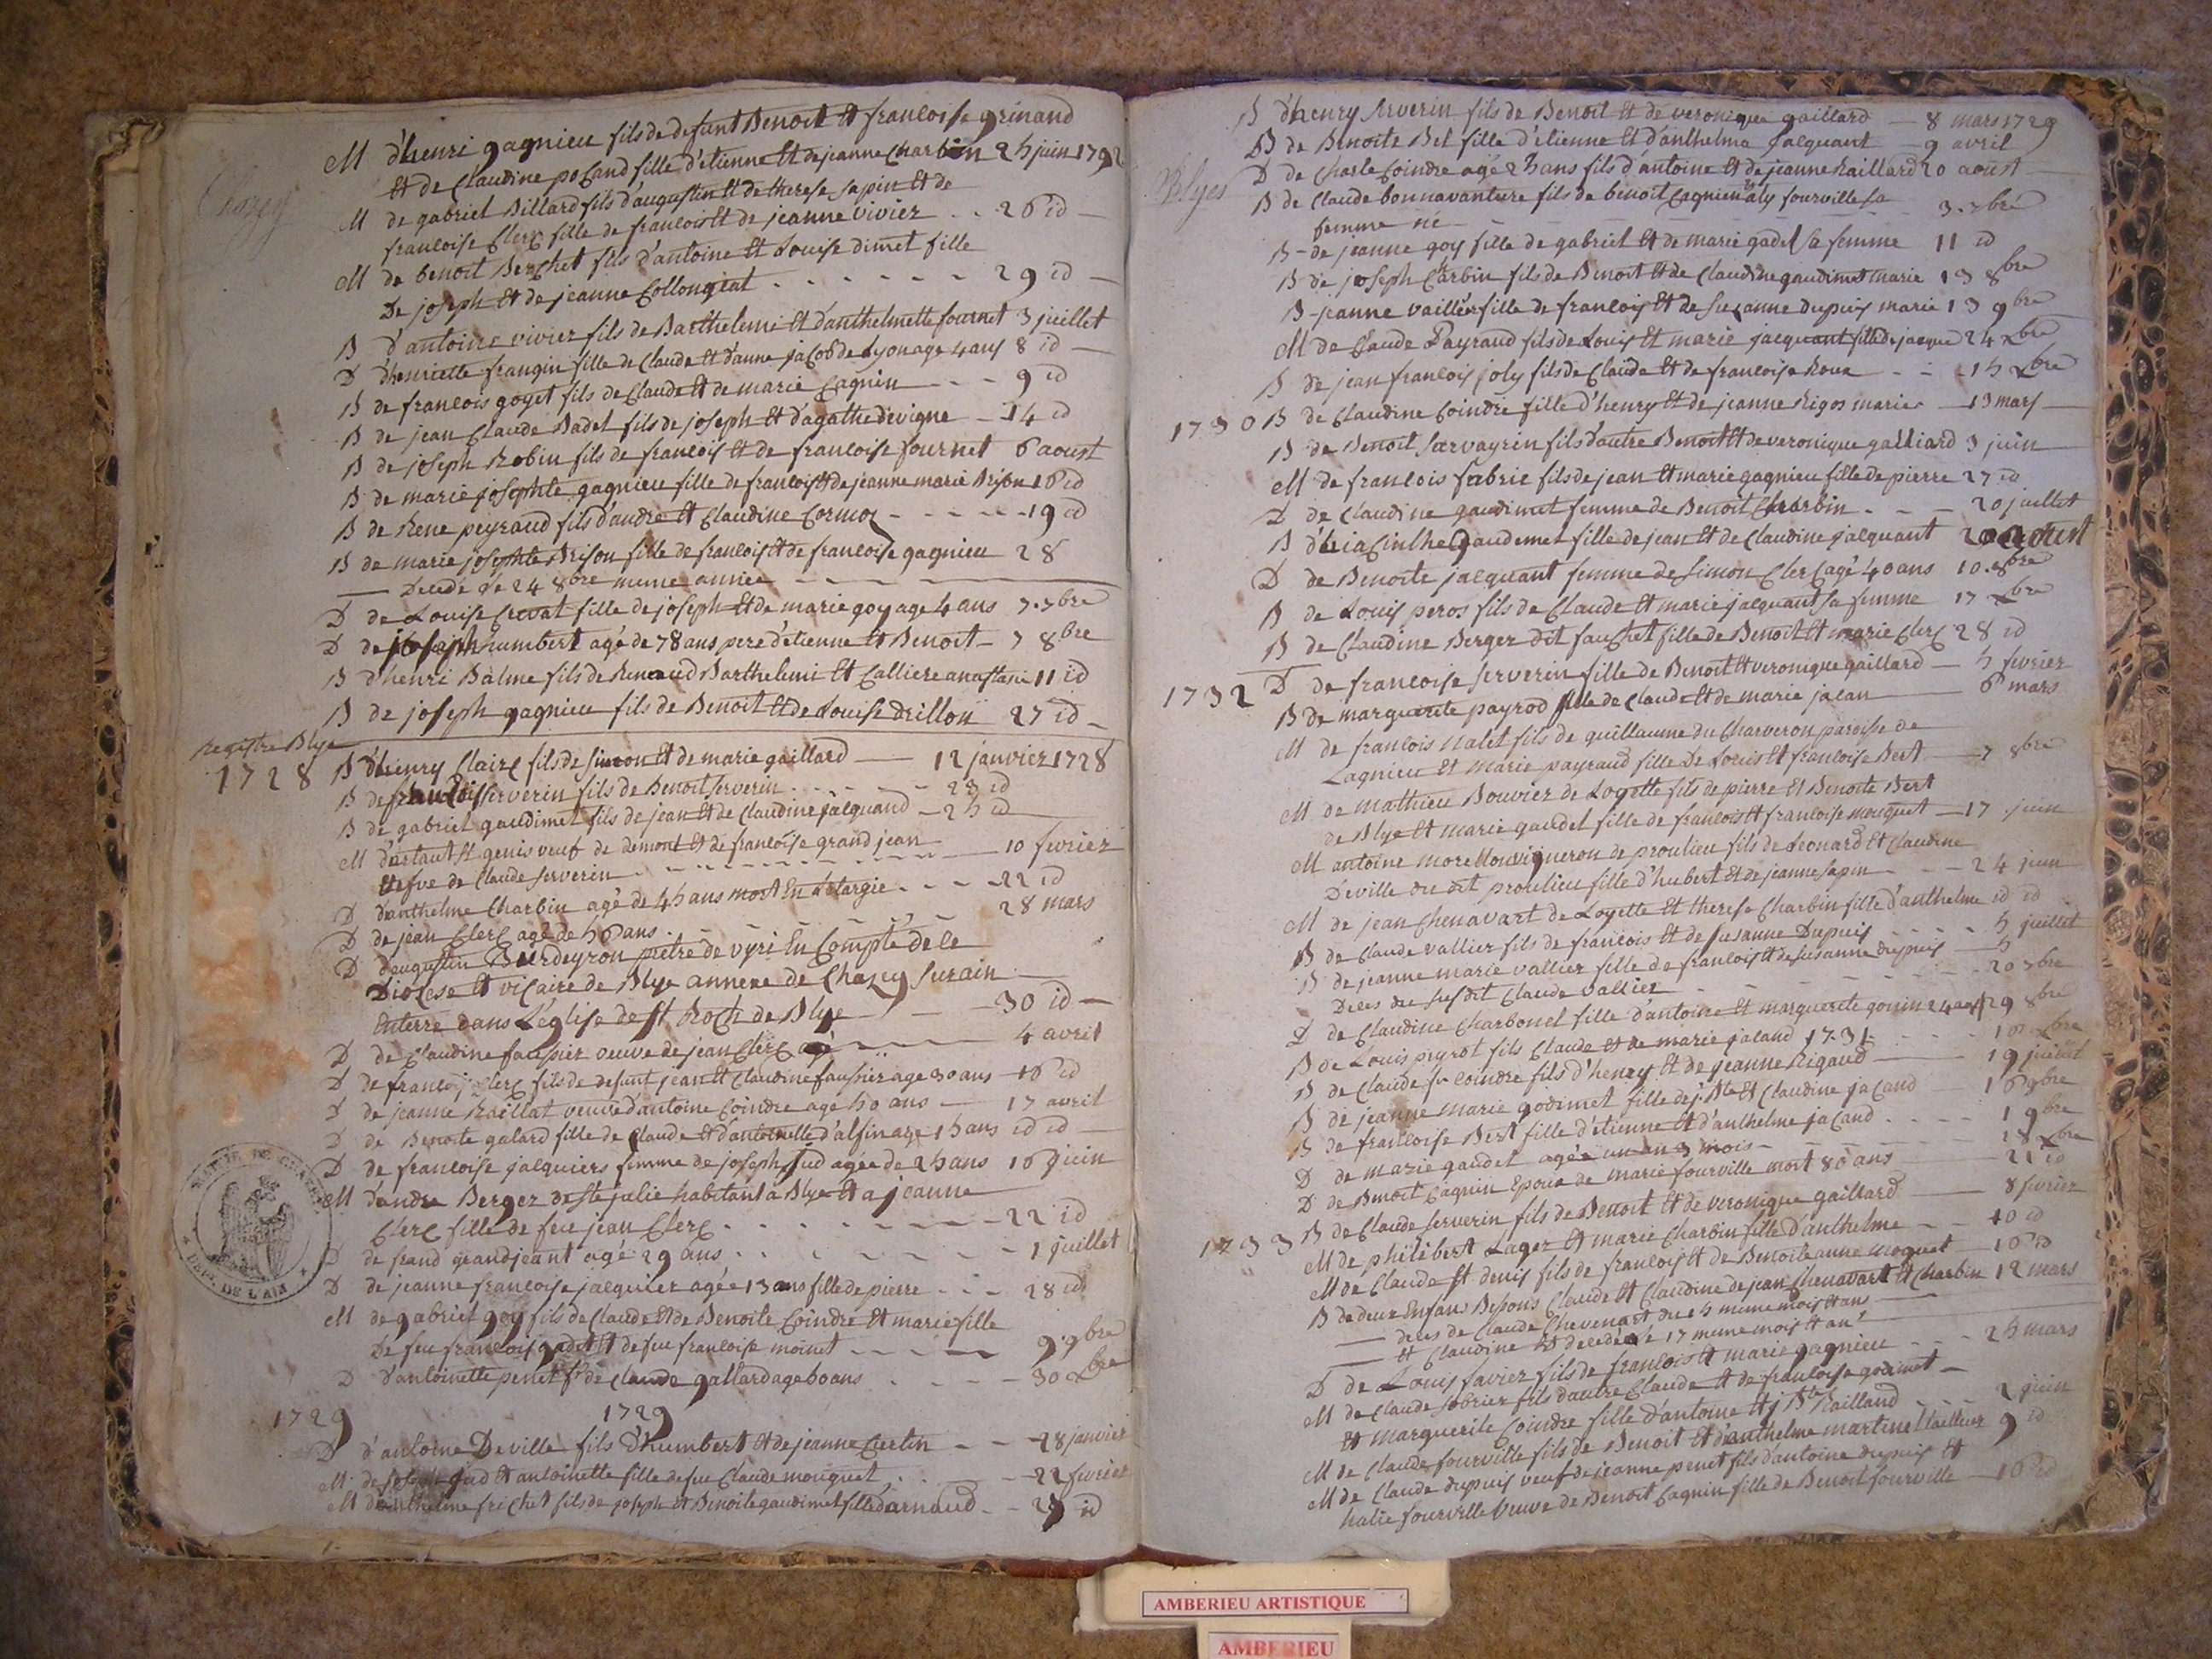 Chazey
M d'henri gagnieu fils de defunt Benoit et francoise grinand
et de Claudine pocand fille d'etienne et de jeanne Charbin 25 juin 1792
M de gabriel Billard fils d'augustin et de therese sapin et de
francoise Clerc fille de francois et de jeanne vivier . . 26 id
M de benoit Berchet fils d'antoine et Louise dimet fille
De joseph et de jeanne Collongiat . . . . . . 29 id
B d'antoine vivier fils de Barthelemi et d'anthelmette fournet 3 juillet
D d'henriette frangin fille de Claude et d'anne jacob de Lyon age 4 ans 8 id
B de francois goyet fils de Claude et de marie Cagnin - - - 9 id
B de jean Claude Badel fils de joseph et d'agathe devigne - 14 id
B de joseph Robin fils de francois et de francoise fournet 6 aoust
B de marie josephte gagnieu fille de francois et de jeanne marie Brison 16 id
B de Rene peyraud fils d'andre et Claudine Cormoz - - - - - 19 id
B de marie josephte Brison fille de francois et de francoise gagnieu 28
Decedé le 24 8bre meme année
D de Louise Crevat fille de joseph et de marie goy age 4 ans 7.7bre
D de joseph humbert agé de 78 ans pere d'etienne et Benoit - 7 8bre
B d'henri Balme fils de Renaud Barthelemi et Calliere anastasie 11 id
B de joseph gagnieu fils de Benoit et de Louise Drillon 27 id
Registre Blye
1728 B d'henry Clairc fils de simon et de marie gaillard — 12 janvier 1728
B de francois serverin fils de Benoit serverin . . . . . 23 id
B de gabriel gaudimet fils de jean et de Claudine jacquand - 25 id
M st genis veuf de demont et de francoise grand jean
vefve de Claude serverin . . . . . 10 fevrier
D d'anthelme Charbin agé de 45 ans mort En . . . 22 id
D de jean Clerc agé de 56 ans . . . . . 28 mars
D d'augustin Burdeyron pretre de vyri En Compté de le
Diocese et vicaire de Blye annexe de Chazey surain
Enterré dans L'église de st Roch de Blye — 30 id
D de Claudine faussier veuve de jean Clerc 4 avril
D de francois Clerc fils de defunt jean et Claudine faussier age 30 ans 16 id
D de jeanne Raillat veuve d'antoine Coindre age 50 ans — 17 avril
D de Benoite galard fille de Claude et d'antoinette d'alsin age 15 ans id id
D de francoise jacquiers femme de joseph sud agée de 25 ans 16 juin
M d'andre Berger de ste julie habitant a Blye et a jeanne
Clerc fille de feu jean Clerc . . . . . . 22 id
D de frand grandjeant agé 29 ans . . . . . . 1 juillet
D de jeanne francoise jacquier agée 13 ans fille de pierre . . . 28 id
M de gabriel goy fils de Claude et de Benoite Coindre et marie fille
De feu francois gadet et de feu francoise moinet - - - - 9.9bre
D d'antoinette penet fe de Claude gallard age 60 ans . . . . 30 xbre
1729 1729
D d'antoine Deville fils d'humbert et de jeanne Curtin - - 28 janvier
M de joseph sud et antoinette fille de feu Claude mouquet . . 22 fevrier
M d'anthelme frichet fils de joseph et Benoite gaudimet fille d'arnaud - - 29 id
MAIRIE DE
DEPT DE L'AIN
B d'henry serverin fils de Benoit et de veronique gaillard — 8 mars 1729
B de Benoite Bet fille d'etienne et d'anthelma jacquant 9 avril
Blyes D de Charle Coindre agé 25 ans fils d'antoine et de jeanne Raillard 20 aoust
B de Claude bonnavanture fils de benoit Cagnien fourville sa
femme né 3.7bre
B de jeanne goy fille de gabriel et de marie gadel sa femme 11 id
B de joseph Charbin fils de Benoit et de Claudine gaudimet marie 13 8bre
B jeanne vallier fille de francois et de susanne dupuis marie 13 9bre
M de Claude Payraud fils de Louis et marie jacquant fille de jacque 24 xbre
B de jean francois joly fils de Claude et de francoise Roux - - 15 xbre
1730 B de Claudine Coindre fille d'henry et de jeanne Rigos marier — 13 mars
B de Benoit servayrin fils d'autre Benoit et de veronique galliard 3 juin
M de francois fabrie fils de jean et marie gagnieu fille de pierre 27 id
D de Claudine gaudimet femme de Benoit Charbin . - - 20 juillet
B d'hiacinthe Gaudemet fille de jean et de Claudine jacquant 20 aoust
D de Benoite jacquant femme de simon Clerc agé 40 ans 10.8bre
B de Louis peros fils de Claude et marie jacquant sa femme 17 xbre
B de Claudine Berger dit fauchet fille de Benoit et marie Clerc 28 id
1732 D de francoise serverin fille de Benoit et veronique gaillard — 5 fevrier
B de marguerite payrod fille de Claude et de marie jacan 6 mars
M de francois Nalet fils de guillaume du Charveron paroisse de
Lagnieu et Marie payraud fille De Louis et francoise Bert — 7 8bre
M de mathieu Bouvier de Loyette fils de pierre et Benoite Bert
de Blye et marie gaudet fille de francois et francoise mouquet — 17 juin
M antoine vigneron de proulieu fils de Leonard et Claudine
Deville du dit proulieu fille d'hubert et de jeanne sapin - - 24 juin
M de jean Chenavart de Loyette et therese Charbin fille d'anthelme id id
B de Claude vallier fils de francois et de susanne Dupuis . . . . 5 juillet
B de jeanne marie vallier fille de francois et de susanne dupuis 5
Deces du susdit Claude vallier - - - - 20 7bre
D de Claudine Charbonel fille d'antoine et marguerite gonin 24 ans 29 8bre
B de Louis peyrot fils Claude et de marie jacand 1731 . . . . xbre
B de Claude fr coindre fils d'henry et de jeanne Rigaud — 19 juillet
B de jeanne marie godimet fille de j. Bte et Claudine jacand 16 9bre
B de francoise Bert fille d'etienne et d'anthelme jacand . . . . 1 9bre
D de marie gaudet agée un an 3 mois - - - 18 xbre
D de Benoit Cagnin Epoux de marie fourville mort 80 ans 21 id
1733 B de Claude serverin fils de Benoit et de veronique gaillard — 8 fevrier
M de philibert Lager et marie Charbin fille d'anthelme - - 10 id
M de Claude st denis fils de francois et de Benoite anne moquet — 16 id
B de deux Enfans Bessons Claude et Claudine de jean Chenavart et Charbin 12 mars
— deces de Claude Chevenart du 15 meme mois et an
— et Claudine est decedée le 17 meme mois et an
D de Louis favier fils de francois et marie gagnieu - - - 25 mars
M de Claude fils d'autre Claude et de francoise godimet
et marguerite Coindre fille d'antoine et j Bte Railland - - 2 juin
M de Claude fourville fils de Benoit et d'anthelme martine 9 id
M de Claude dupuis veuf de jeanne penet fils d'antoine dupuis et
fourville veuve de Benoit Cagnin fille de Benoit fourville — 16 id
AMBERIEU ARTISTIQUE
AMBERIEU